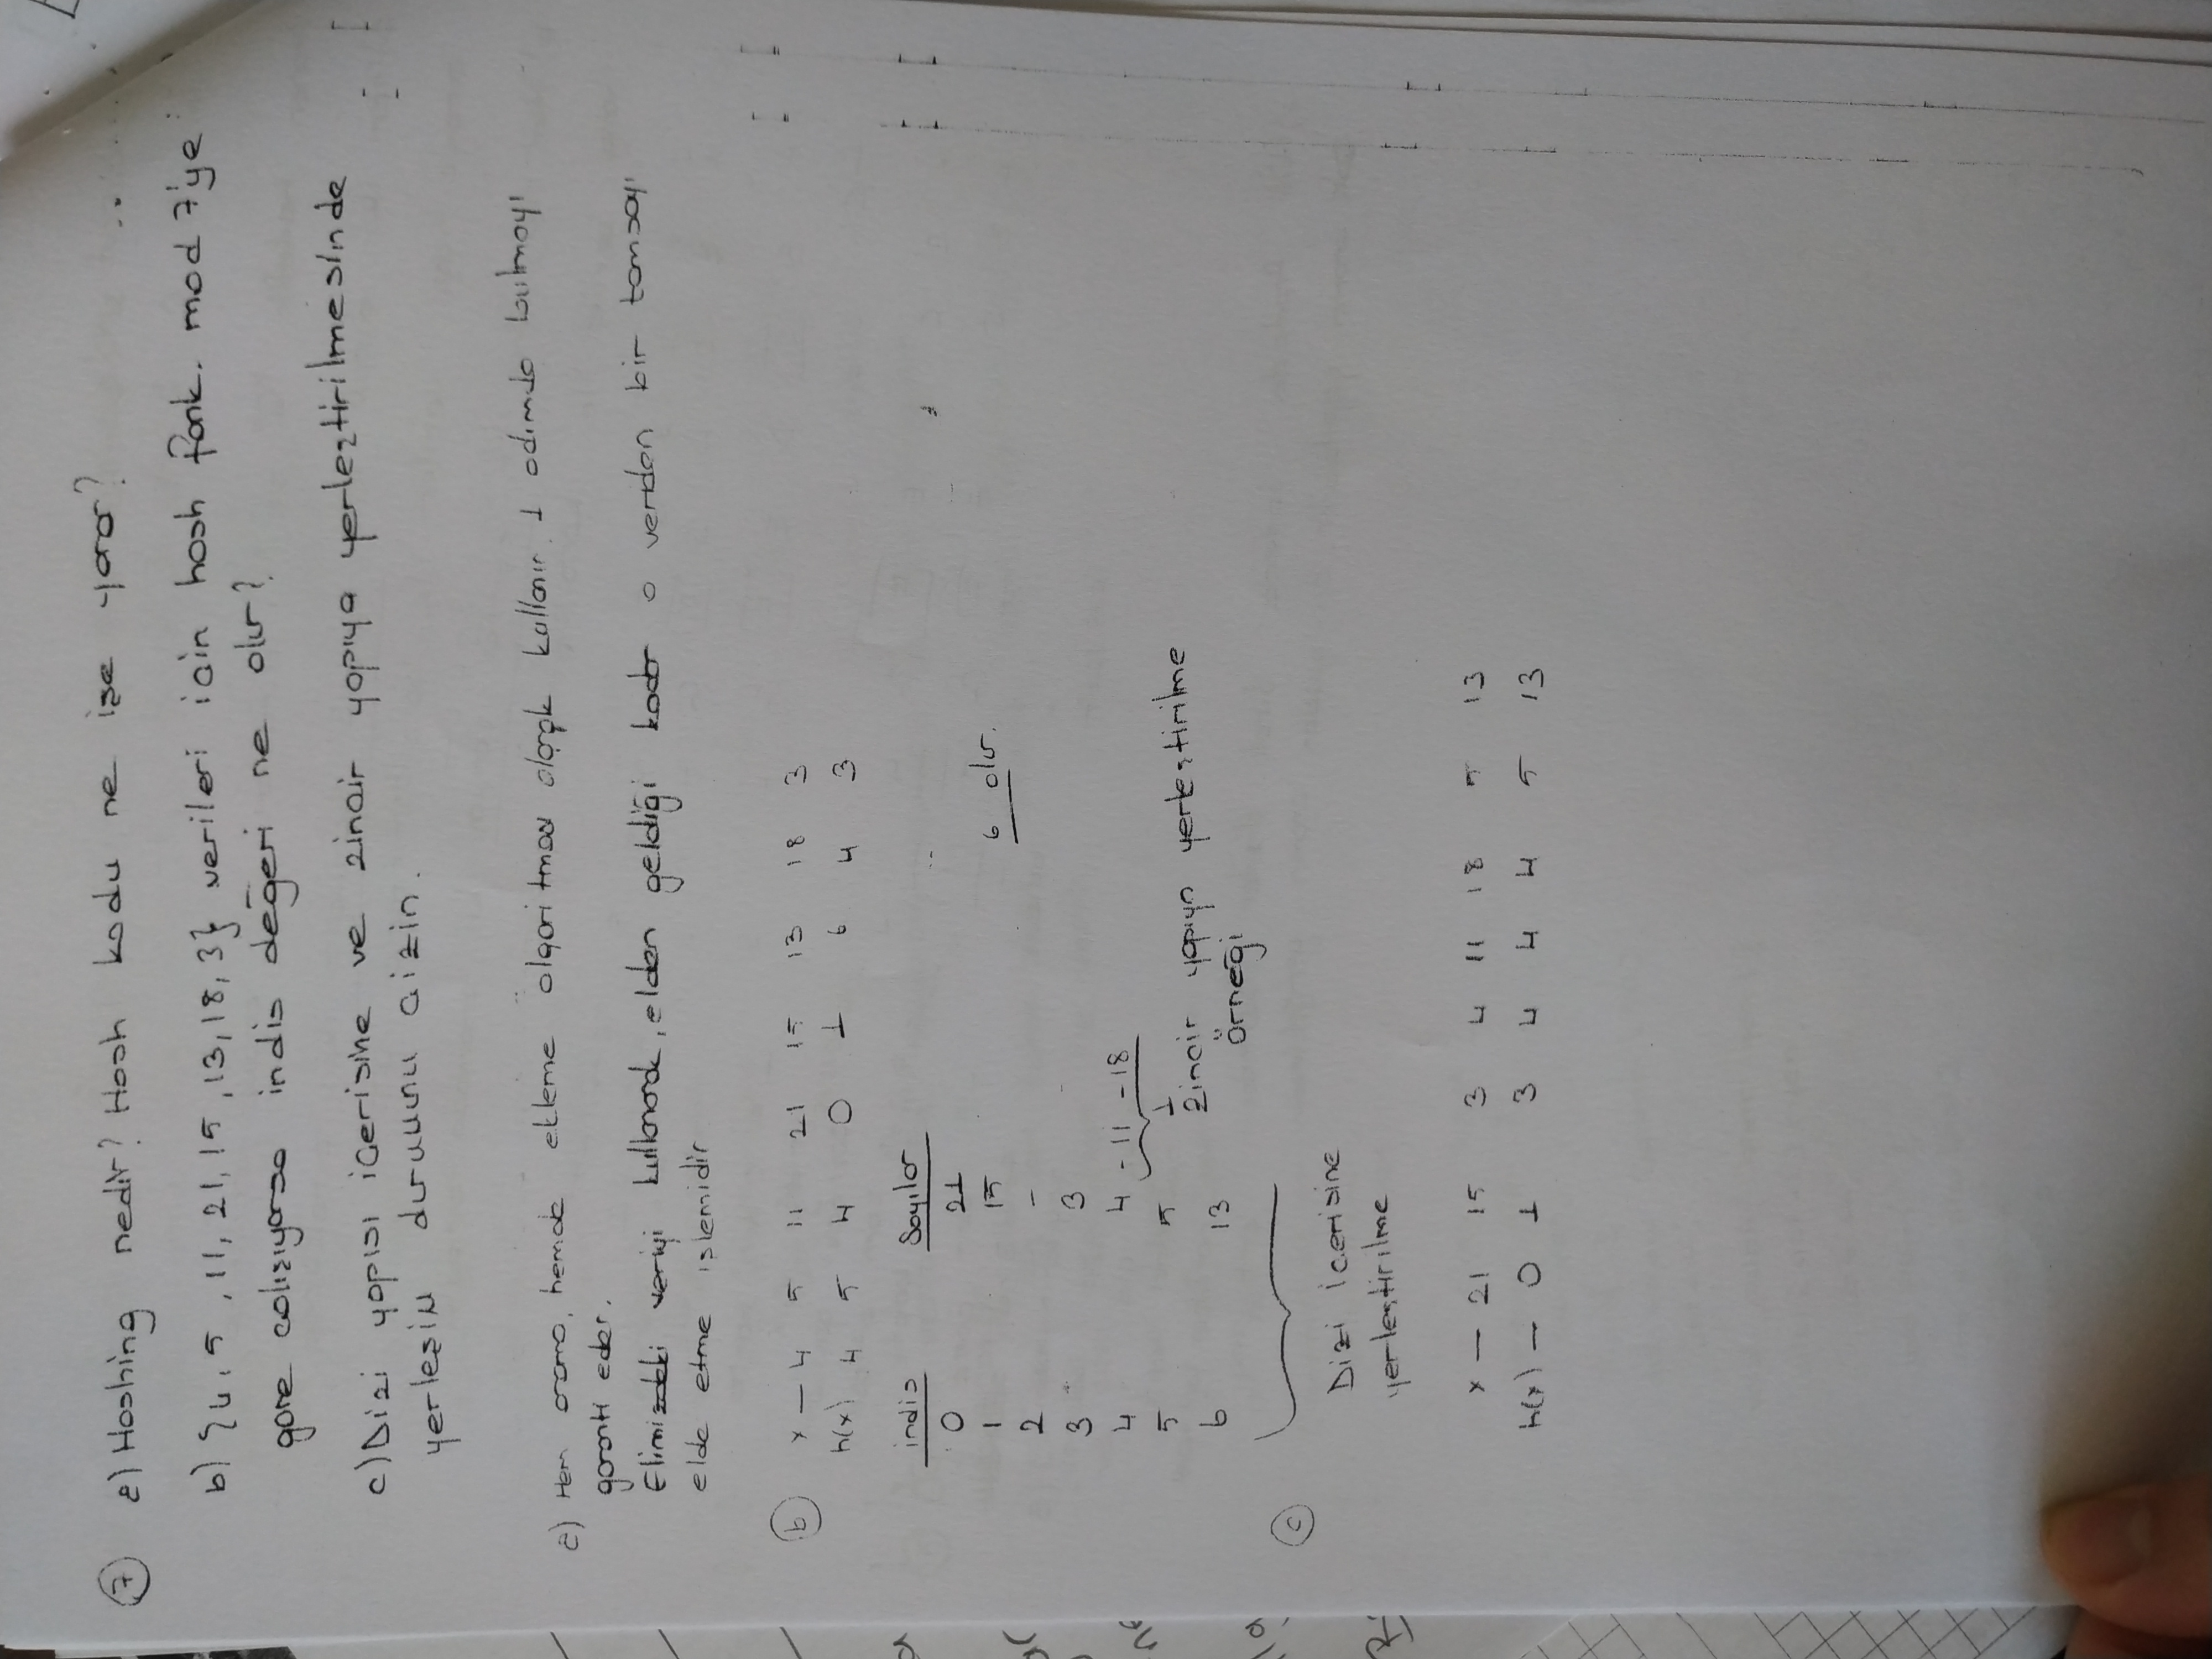 7 a) Hashing nedir? Hash kodu ne işe yarar?
b) {4, 5, 11, 21, 15, 13, 18, 3} verileri için hash fonk. mod 7'ye
göre çalışıyorsa indis değeri ne olur?
c) Dizi yapısı içerisine ve zincir yapıya yerleştirilmesinde
yerleşim durumunu çizin.
a) Hem arama, hemde ekleme algoritması olarak kullanılır. 1 adımda bulmayı
garanti eder.
Elimizdeki veriyi kullanarak, elden geldiği kadar o veriden bir tamsayı
elde etme işlemidir
b x — 4 5 11 21 15 13 18 3
h(x) 4 5 4 0 1 6 4 3
indis Sayılar
0 21
1 15
6 olur.
2 -
3 3
4 4 - 11 - 18
5 5
zincir yapıya yerleştirilme
6 13
örneği
c
Dizi içerisine
yerleştirilme
x — 21 15 3 4 11 18 5 13
h(x) — 0 1 3 4 4 4 5 13